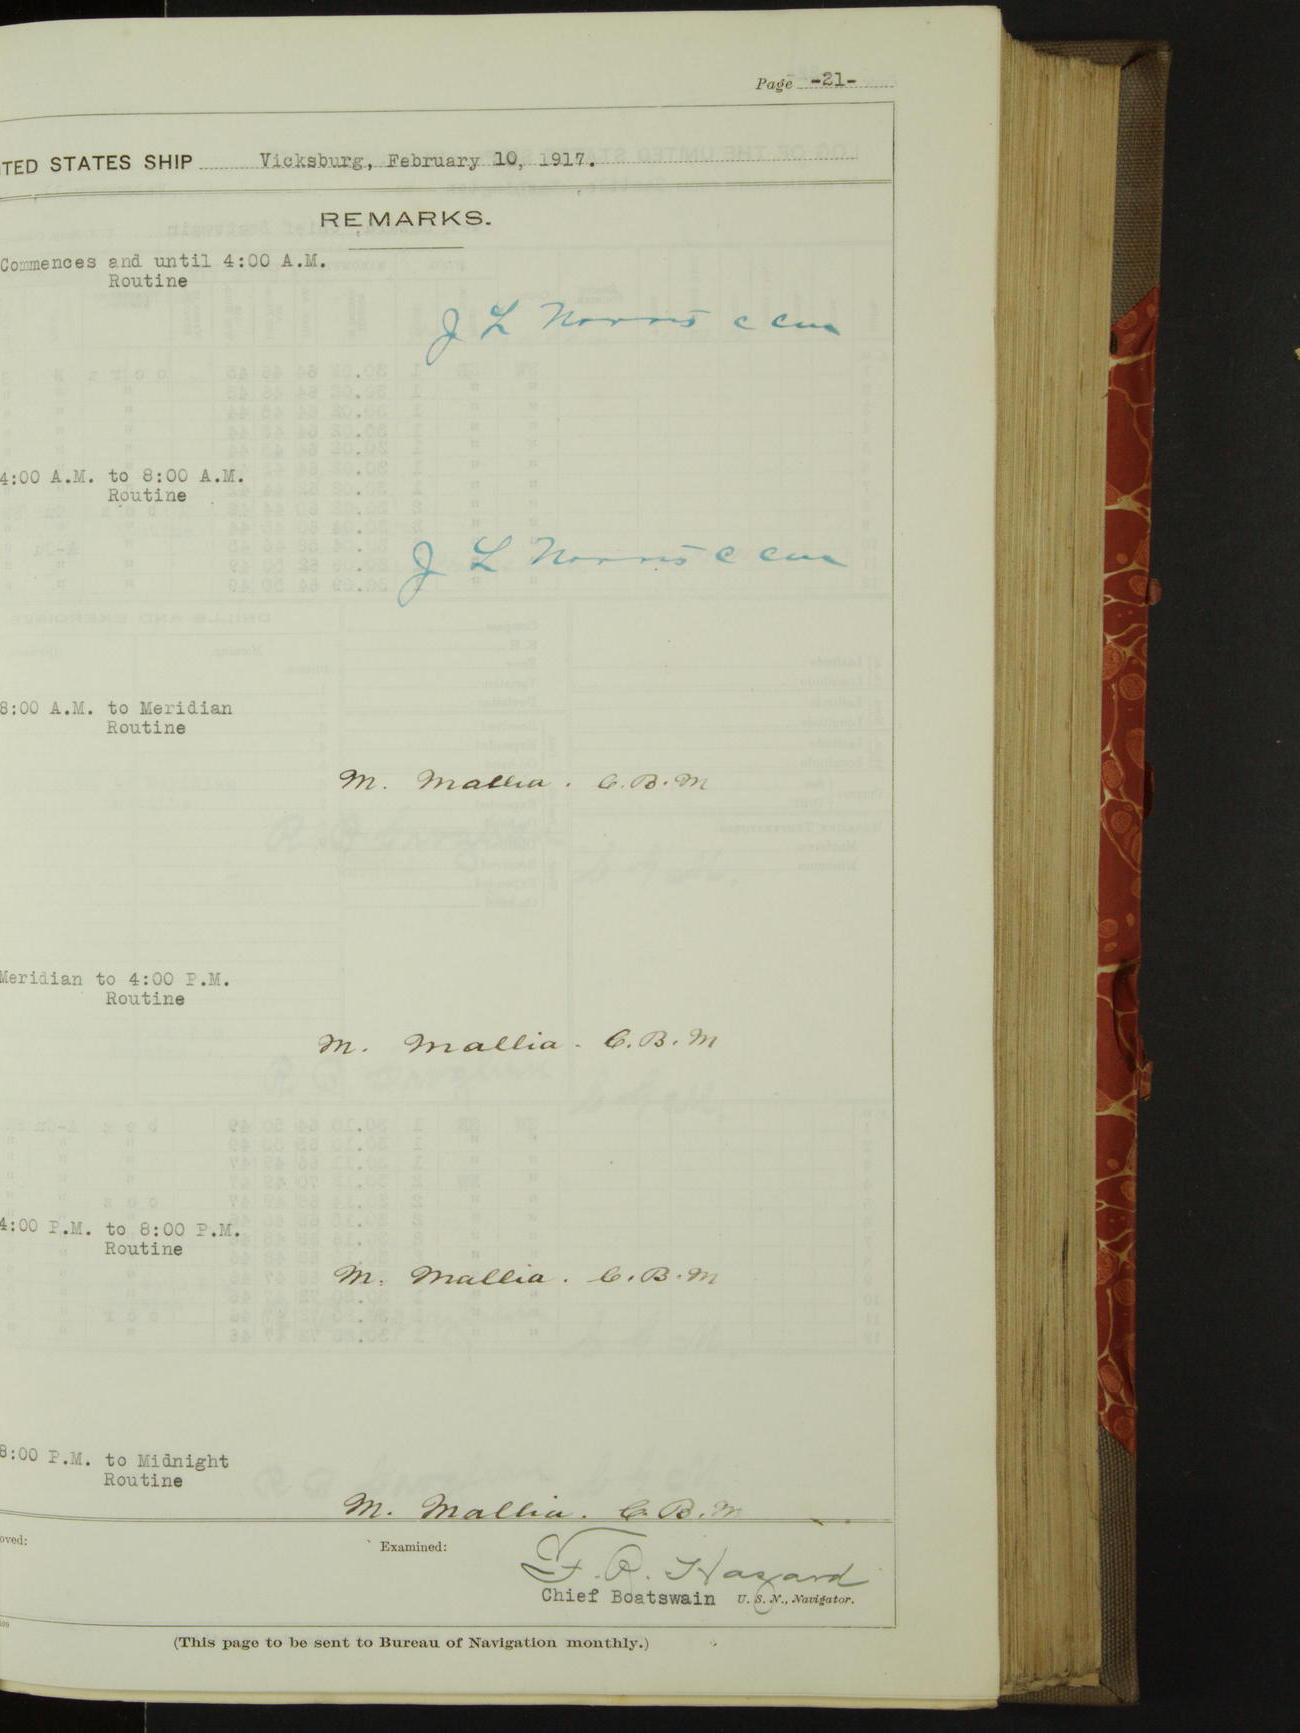 Page -21-
TED STATES SHIP Vicksburg, February 10, 1917.
REMARKS.
Commences and until 4:00 A.M.
Routine
J L Norris C C
4:00 A.M. to 8:00 A.M.
Routine
J L Norris C C
8:00 A.M. to Meridian
Routine
M. Mallia. C.B.M
Meridian to 4:00 P.M.
Routine
M. Mallia. C.B.M
4:00 P.M. to 8:00 P.M.
Routine
M. Mallia. C.B.M
8:00 P.M. to Midnight
Routine
M. Mallia. C.B.M
oved:
Examined:
F. R. Hazard
Chief Boatswain U. S. N., Navigator.
(This page to be sent to Bureau of Navigation monthly.)